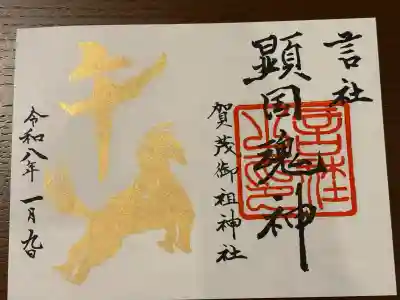 言社
顕国魂神
賀茂御祖神社
午
令和八年一月九日